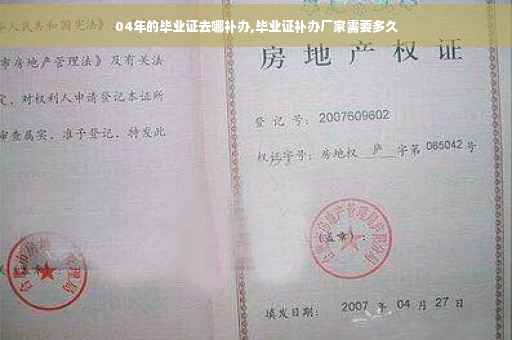 04年的毕业证去哪补办,毕业证补办厂家需要多久
人民共和国宪法》
市房地产管理法》及有
定，对权利人申请登记本证所
审查属实，准予登记，特发此
房地产权证
登记号：2007609602
权证字号：房地权 庐 字第 065042 号
(盖章)：
填发日期：2007 年 04 月 27 日